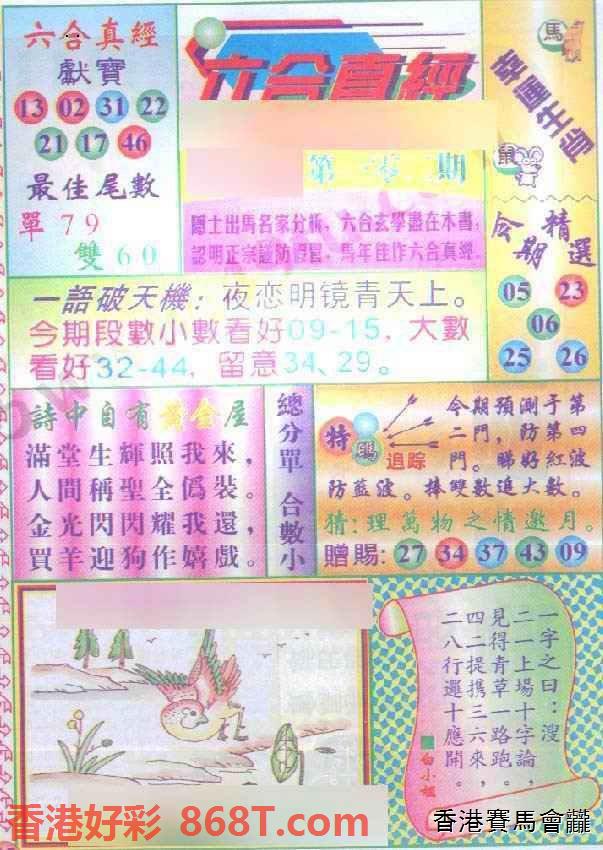 六合真經
獻寶
13 02 31 22
21 17 46
最佳尾數
單 7 9
雙 6 0
六合真經
隱士出馬名家分析，六合玄學盡在本書，
認明正宗謹防假冒，馬年佳作六合真經。
馬
幸運生肖
鼠
今期
精選
05 23
06
25 26
一語破天機：夜恋明镜青天上。
今期段數小數看好09-15，大數
看好32-44，留意34、29。
詩中自有黃金屋
滿堂生輝照我來，
人間稱聖全僞裝。
金光閃閃耀我還，
買羊迎狗作嬉戲。
總分單 合數小
特碼
追踪
今期預測于第
二門，防第四
門。睇好紅波
防藍波。捧雙數追大數。
猜:理萬物之情邀月。
贈賜: 27 34 37 43 09
一字之曰：溲，
二一上場十字論，
見得青草一路跑。
四二提携三六來，
二八行運十應開。
白小姐
香港好彩 868T.com
香港賽馬會